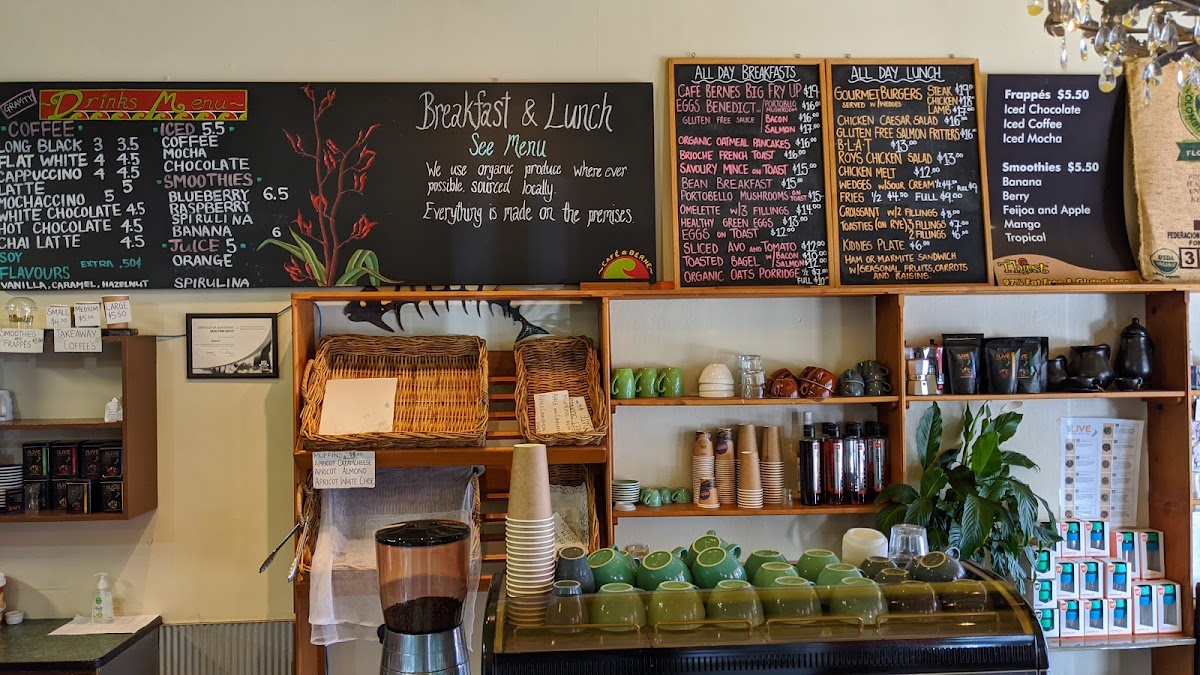 GRAVITY
Drinks Menu
COFFEE
LONG BLACK 3 3.5
FLAT WHITE 4 4.5
CAPPUCCINO 4 4.5
LATTE 5
MOCHACCINO 5
WHITE CHOCOLATE 4.5
HOT CHOCOLATE 4.5
CHAI LATTE 4.5
SOY
FLAVOURS EXTRA .50¢
VANILLA, CARAMEL, HAZELNUT
ICED 5.5
COFFEE
MOCHA
CHOCOLATE
SMOOTHIES
BLUEBERRY 6.5
RASPBERRY
SPIRULINA
BANANA 6
JUICE 5
ORANGE
SPIRULINA
Breakfast & Lunch
See Menu
We use organic produce where ever
possible, sourced locally.
Everything is made on the premises.
CAFÉ BERNE
ALL DAY BREAKFASTS
CAFÉ BERNES BIG FRY UP $19
EGGS BENDICT PORTOBELLO MUSHROOM $16
GLUTEN FREE SAUCE BACON $16
SALMON $17
ORGANIC OATMEAL PANCAKES $16
BRIOCHE FRENCH TOAST $16
SAVOURY MINCE ON TOAST $15
BEAN BREAKFAST $15
PORTOBELLO MUSHROOMS ON TOAST $15
OMELETTE W/3 FILLINGS $14
HEALTHY GREEN EGGS $13
EGGS ON TOAST $12
SLICED AVO AND TOMATO $12
TOASTED BAGEL W/BACON $10
SALMON $12
ORGANIC OATS PORRIDGE 1/2 $7
FULL $10
ALL DAY LUNCH
GOURMET BURGERS STEAK $19
SERVED W/WEDGES CHICKEN $18
LAMB $17
CHICKEN CAESAR SALAD $16
GLUTEN FREE SALMON FRITTERS $16
B·L·A·T $13
ROYS CHICKEN SALAD $13
CHICKEN MELT $12
WEDGES W/SOUR CREAM 1/2 $4 FULL $9
FRIES 1/2 $4 FULL $9
CROISSANT W/2 FILLINGS $8
TOASTIES (ON RYE) 3 FILLINGS $7
2 FILLINGS $6
KIDDIES PLATE $6
HAM OR MARMITE SANDWICH
W/SEASONAL FRUITS, CARROTS
AND RAISINS.
Frappés $5.50
Iced Chocolate
Iced Coffee
Iced Mocha
Smoothies $5.50
Banana
Berry
Feijoa and Apple
Mango
Tropical
97% Fat Free & Gluten Free
USDA ORGANIC
SMALL $4.00
MEDIUM
LARGE $5.50
SMOOTHIES AND FRAPPÉS
TAKEAWAY COFFEES
MUFFINS
APRICOT CREAMCHEESE
APRICOT ALMOND
APRICOT WHITE CHOC